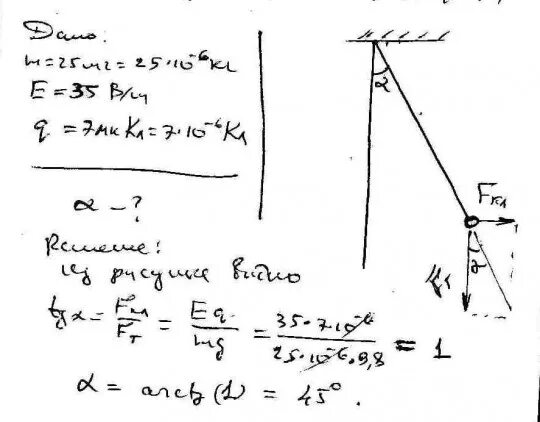 Дано:
m = 25 мг = 25·10⁻⁶ кг
E = 35 В/м
q = 7мк Кл = 7·10⁻⁶ Кл
α – ?
α
Fкл
α
Fт
Решение:
из рисунка видно
tgα = Fкл/Fт = Eq/mg = 35·7·10⁻⁶/25·10⁻⁶·9,8 = 1
α = arctg(1) = 45°.